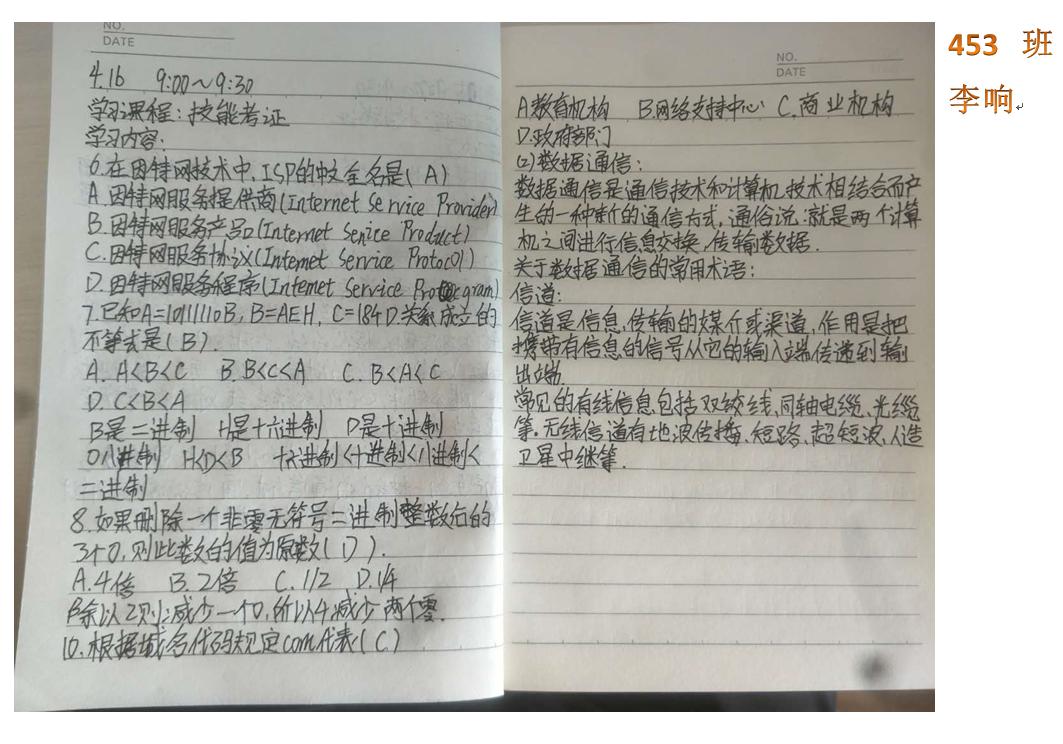 NO.
DATE
4.16 9:00~9:30
学习课程:技能考证
学习内容:
6.在因特网技术中,ISP的中文全名是(A)
A.因特网服务提供商(Internet Service Provider)
B.因特网服务产品(Internet Service Product)
C.因特网服务协议(Internet Service Protocol)
D.因特网服务程序(Internet Service Program)
7.已知A=10111110B,B=AEH,C=184D.关系成立的
不等式是(B).
A.A<B<C B.B<C<A C.B<A<C
D.C<B<A
B是二进制 H是十六进制 D是十进制
O八进制 H<D<B 十六进制<十进制<八进制<
二进制
8.如果删除一个非零无符号二进制整数后的
3个0,则此数的值为原数(D).
A.4倍 B.2倍 C.1/2 D.1/4
除以2则减少一个0,所以4减少两个零.
10.根据域名代码规定com代表(C)
NO.
DATE
A教育机构 B.网络支持中心 C.商业机构
D.政府部门
(2)数据通信:
数据通信是通信技术和计算机技术相结合而产
生的一种新的通信方式,通俗说:就是两个计算
机之间进行信息交换,传输数据.
关于数据通信的常用术语:
信道:
信道是信息传输的媒介或渠道,作用是把
携带有信息的信号从它的输入端传递到输
出端.
常见的有线信息包括双绞线、同轴电缆、光缆
等.无线信道有地波传播、短路、超短波、人造
卫星中继等.
453 班
李响